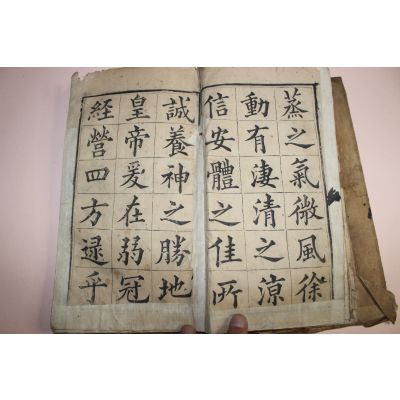 蒸之氣微風徐
動有淒清之涼
信安體之佳所
誠養神之勝地
皇帝爰在弱冠
經營四方逯乎